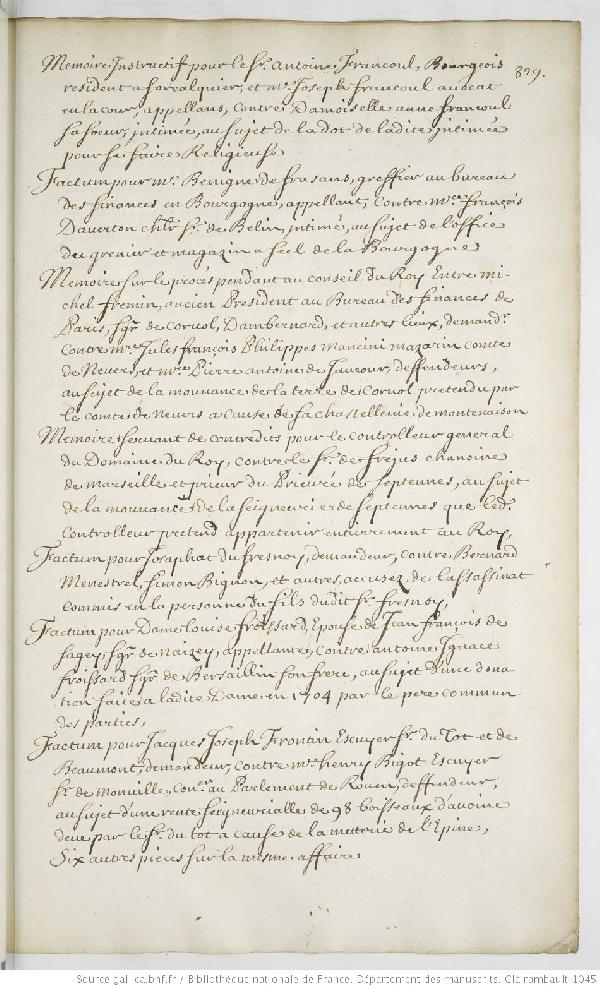 Memoire Instructif pour le Sr. Antoine Francoul, Bourgeois
829.
resident a forcalquier, et me. Joseph francoul avocat
en la cour, appellans, Contre Damoiselle anne francoul
sa soeur, intimée, au sujet de la dot de ladite intimée
pour se faire Religieuse
Factum pour me. Benigne de frasans, greffier au bureau
des finances en Bourgogne, appellant, Contre mre. François
Daverton chlr. sr. de Belin, intimé, au sujet de l'office
du grenier et magazin a sel de la Bourgogne
Memoire sur le procés pendant au conseil du Roy Entre mi-
chel fremin, ancien President au Bureau des finances de
Paris, sgr. de Corvol, Dambernard, et autres lieux, demandr.
Contre mre. Jules françois Philippes mancini mazarin comte
de Nevers, et mre. Pierre antoine de Jaucour, deffendeurs,
au sujet de la mouvance de la terre de Corvol pretendu par
le comte de Nevers a cause de sa chastellenie de montenaison
Memoire servant de contredits pour le Controlleur general
du Domaine du Roy, Contre le sr. de frejus chanoine
de marseille et prieur du Prieuré de Septeunes, au sujet
de la mouvance de la seigneurie de Septeunes que led.
Controlleur pretend appartenir entierrement au Roy,
Factum pour Josaphat du fresnoy, demandeur, Contre Bernard
Menestrel, Simon Bignon, et autres, accusez, de l'assassinat
commis en la personne du fils dudit sr. fresnoy,
Factum pour Dame Louise froissard, Epouse de Jean françois de
sagey, sgr. de Naizey, appellante, Contre antoine Ignace
froissard sgr. de Bersaillin son frere, au sujet d'une dona
tion faite a ladite Dame en 1704 par le pere commun
des parties,
Factum pour Jacques Joseph Frontin Escuyer sr. du Tot et de
Beaumont, demandeur, Contre mre. henry Bigot Escuyer
sr. de Monville, Coner. au Parlement de Rouen, deffendeur,
au sujet d'une rente seigneurialle de 98 boisseaux d'avoine
deue par le sr. du tot a cause de la metterie de l'Epine,
Six autres pieces sur la mesme affaire
Source gallica.bnf.fr / Bibliothèque nationale de France. Département des manuscrits. Clairambault 1045